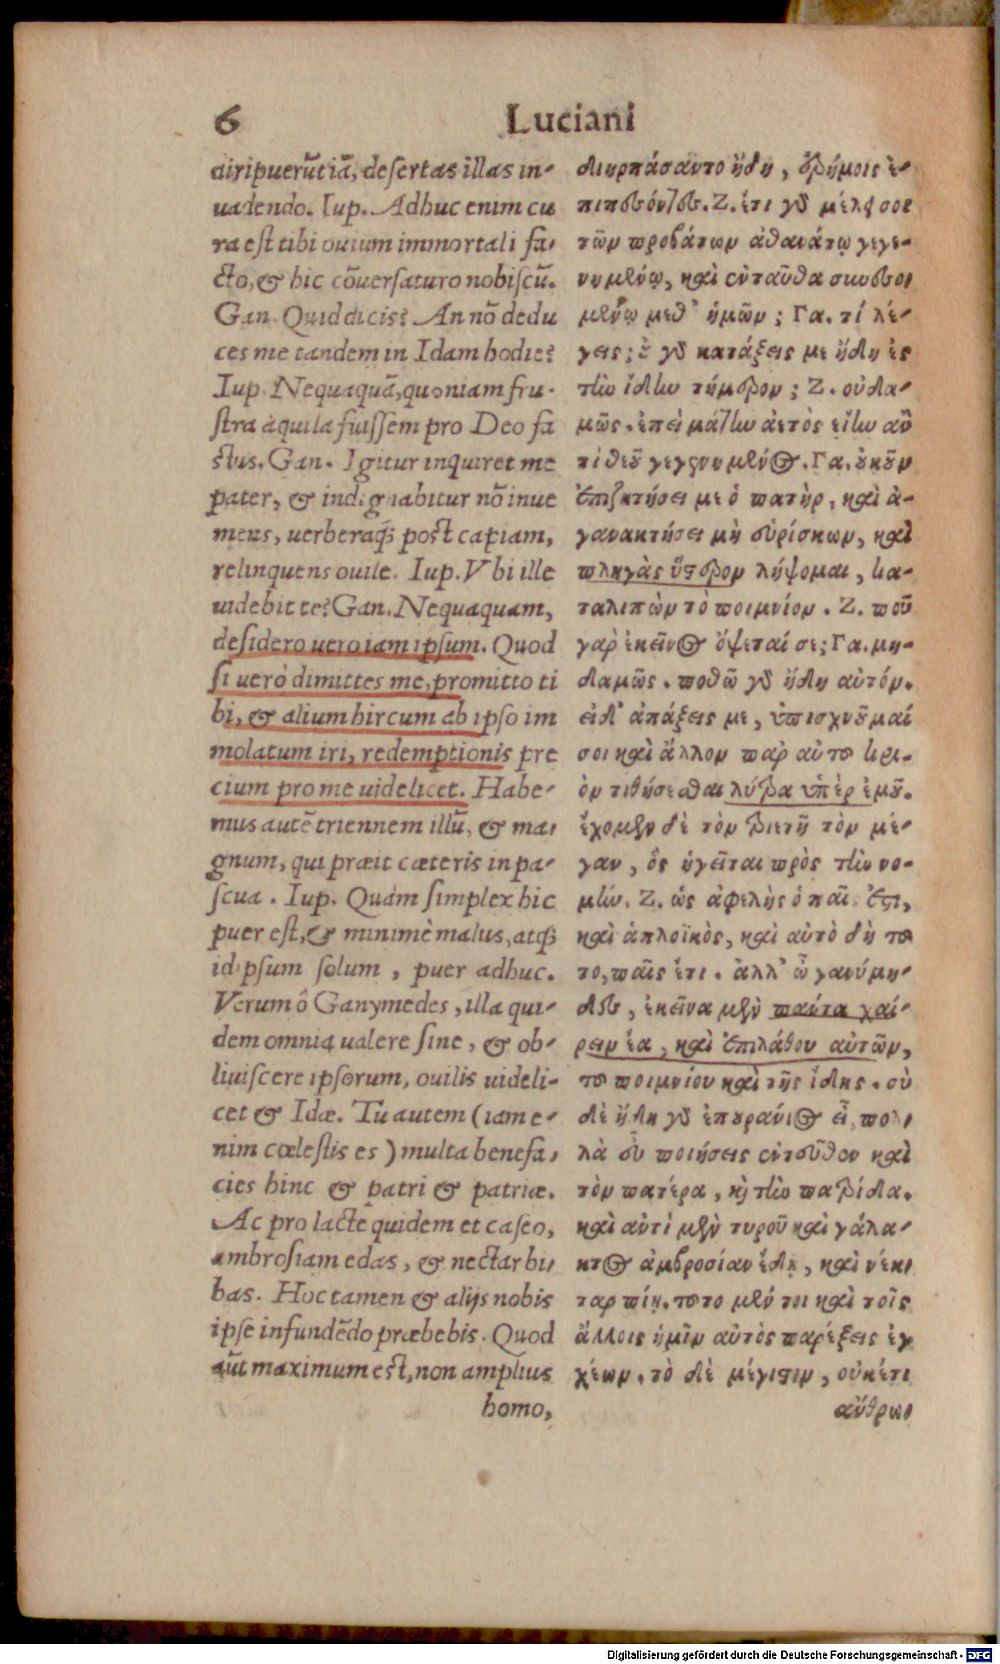 6 Luciani
diripuerūt iā, desertas illas in-
uadendo. Iup. Adhuc enim cu
ra est tibi ouium immortali fa-
cto, & hic cōuersaturo nobiscū.
Gan. Quid dicis? An nō dedu
ces me tandem in Idam hodie?
Iup. Nequaquā, quoniam fru-
stra aquila fuissem pro Deo fa
ctus. Gan. Igitur inquiret me
pater, & indignabitur nō inue
mens, uerberaq́; post capiam,
relinquens ouile. Iup. Vbi ille
uidebit te? Gan. Nequaquam,
desidero uero iam ipsum. Quod
si uerò dimittes me, promitto ti
bi, & alium hircum ab ipso im
molatum iri, redemptionis pre
cium pro me uidelicet. Habe-
mus autē triennem illū, & ma-
gnum, qui præit cæteris in pa-
scua. Iup. Quàm simplex hic
puer est, & minimè malus, atq́;
id ipsum solum, puer adhuc.
Verum ô Ganymedes, illa qui-
dem omnia ualere sine, & ob-
liuiscere ipsorum, ouilis uideli-
cet & Idæ. Tu autem (iam e-
nim cœlestis es) multa benefa-
cies hinc & patri & patriæ.
Ac pro lacte quidem et caseo,
ambrosiam edas, & nectar bi-
bas. Hoc tamen & alijs nobis
ipse infundēdo præbebis. Quod
aūt maximum est, non amplius
homo,
διηρπάσαντο ἤδη, ἐρήμοις ἐ-
πιπεσόντες. Ζ. ἔτι γὰρ μέλει σοι
τῶν προβάτων ἀθανάτῳ γεγε-
νημένῳ, καὶ ἐνταῦθα συνεσο-
μένῳ μεθ' ἡμῶν; Γα. τί λέ-
γεις; οὐ γὰρ κατάξεις με ἤδη ἐς
τὴν ἴδην τήμερον; Ζ. οὐδα-
μῶς. ἐπεὶ μάτην ἀετὸς εἴην ἂν
τὶ θεοῦ γεγενημένος. Γα. οὐκοῦν
ἐπιζητήσει με ὁ πατὴρ, καὶ ἀ-
γανακτήσει μὴ εὑρίσκων, καὶ
πληγὰς ὕστερον λήψομαι, κα-
ταλιπὼν τὸ ποιμνίον. Ζ. ποῦ
γὰρ ἐκεῖνος ὄψεταί σε; Γα. μη-
δαμῶς. ποθῶ γὰρ ἤδη αὐτόν.
εἰ δ' ἀπάξεις με, ὑπισχνοῦμαί
σοι καὶ ἄλλον παρ αὐτοῦ κρι-
ὸν τιθήσεσθαι λύτρα ὑπὲρ ἐμοῦ.
ἔχομεν δὲ τὸν τριετῆ τὸν μέ-
γαν, ὃς ἡγεῖται πρὸς τὴν νο-
μήν. Ζ. ὡς ἀφελὴς ὁ παῖς ἐστι,
καὶ ἁπλοϊκὸς, καὶ αὐτὸ δὴ τοῦ
το, παῖς ἔτι. ἀλλ' ὦ γανύμη-
δες, ἐκεῖνα μὲν πάντα χαί-
ρειν ἔα, καὶ ἐπιλάθου αὐτῶν,
τοῦ ποιμνίου καὶ τῆς ἴδης. σὺ
δὲ ἤδη γὰρ ἐπουράνιος εἶ, πολ-
λὰ εὖ ποιήσεις ἐντεῦθεν καὶ
τὸν πατέρα, καὶ τὴν πατρίδα.
καὶ ἀντὶ μὲν τυροῦ καὶ γάλα-
κτος ἀμβροσίαν ἔδῃ, καὶ νέκ-
ταρ πίῃ. τοῦτο μέν τοι καὶ τοῖς
ἄλλοις ἡμῖν αὐτὸς παρέξεις ἐγ
χέων. τὸ δὲ μέγιστον, οὐκέτι
ἄνθρω-
Digitalisierung gefördert durch die Deutsche Forschungsgemeinschaft - DFG